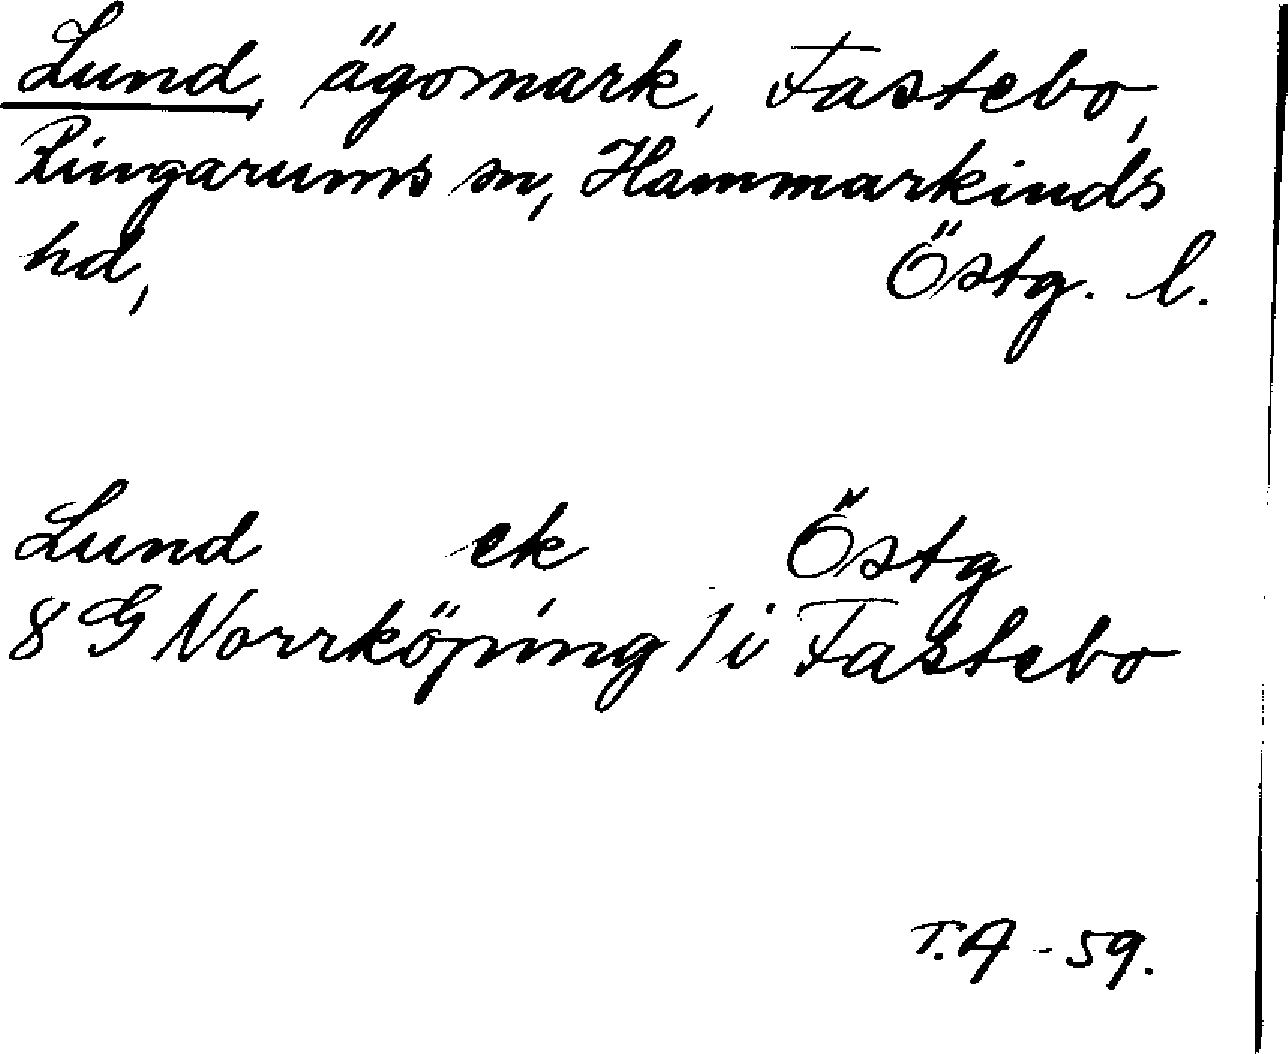 Lund, ägomark, Fastebo,
Ringarums sn, Hammarkinds
hd, Östg. l.
Lund ek Östg
8 G Norrköping / i Fastebo
T.A - 59.